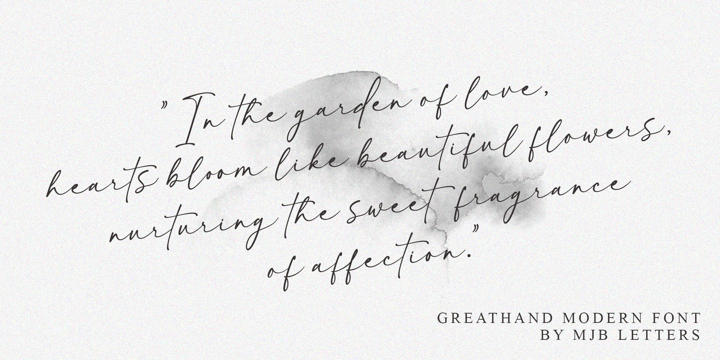 "In the garden of love,
hearts bloom like beautiful flowers,
nurturing the sweet fragrance
of affection."
GREATHAND MODERN FONT
BY MJB LETTERS